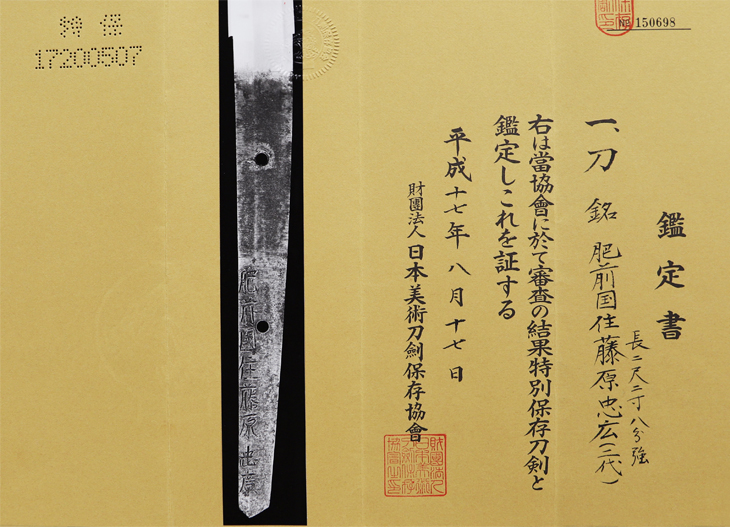 № 150698
鑑定書
一、刀 銘 肥前国住藤原忠広(二代)
長二尺二寸八分強
右は當協會に於て審査の結果特別保存刀剣と
鑑定しこれを証する
平成十七年八月十七日
財團法人日本美術刀劍保存協會
特保
17200507
肥前國住藤原忠廣